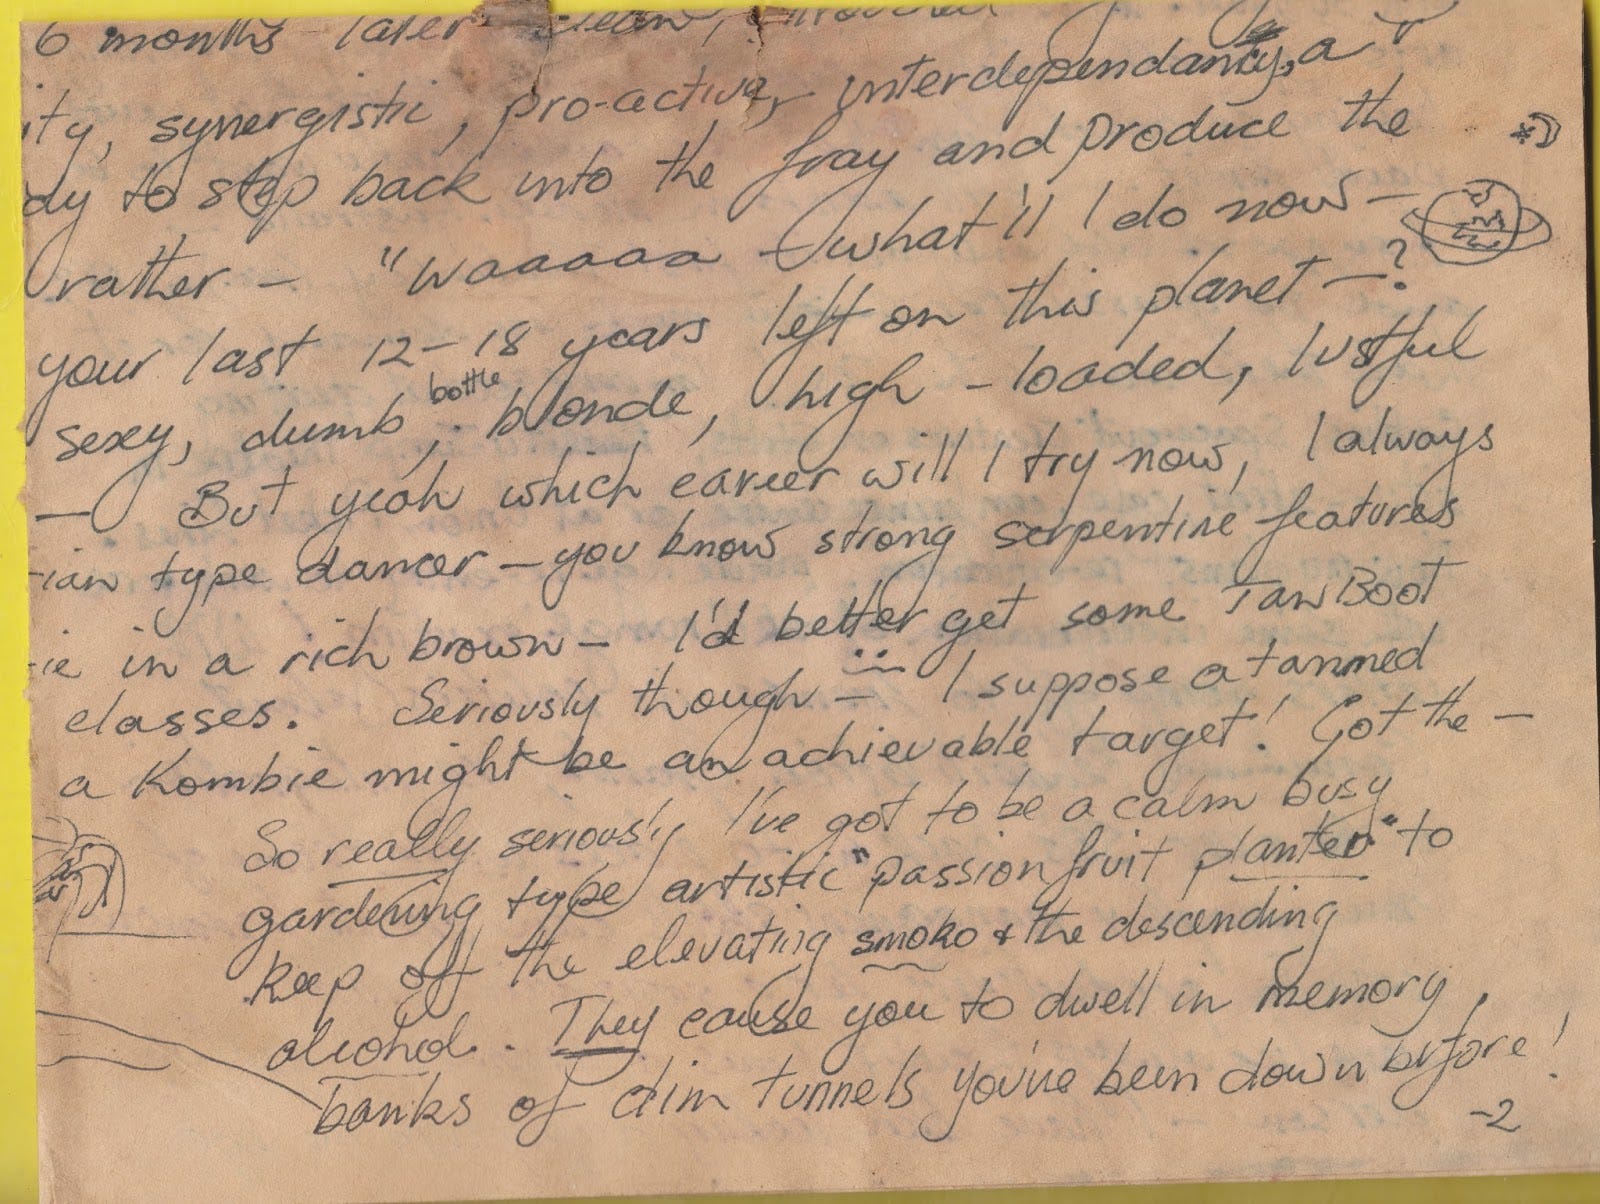 6 months later clean,
ity, synergistic, pro-active, interdependancy, a
dy to step back into the fray and produce the
rather - "waaaaa - what'll I do now -
your last 12-18 years left on this planet - ?
sexy, dumb, bottle blonde, high - loaded, lustful
- But yeah which career will I try now, I always
ian type dancer - you know strong serpentine features
ie in a rich brown - I'd better get some Taw Boot
classes. Seriously though - I suppose a tanned
a Kombie might be an achievable target! Got the -
So really seriously I've got to be a calm busy
gardening type artistic "passionfruit planter" to
keep off the elevating smoko & the descending
alcohol. They cause you to dwell in memory
banks of dim tunnels you've been down before!
-2